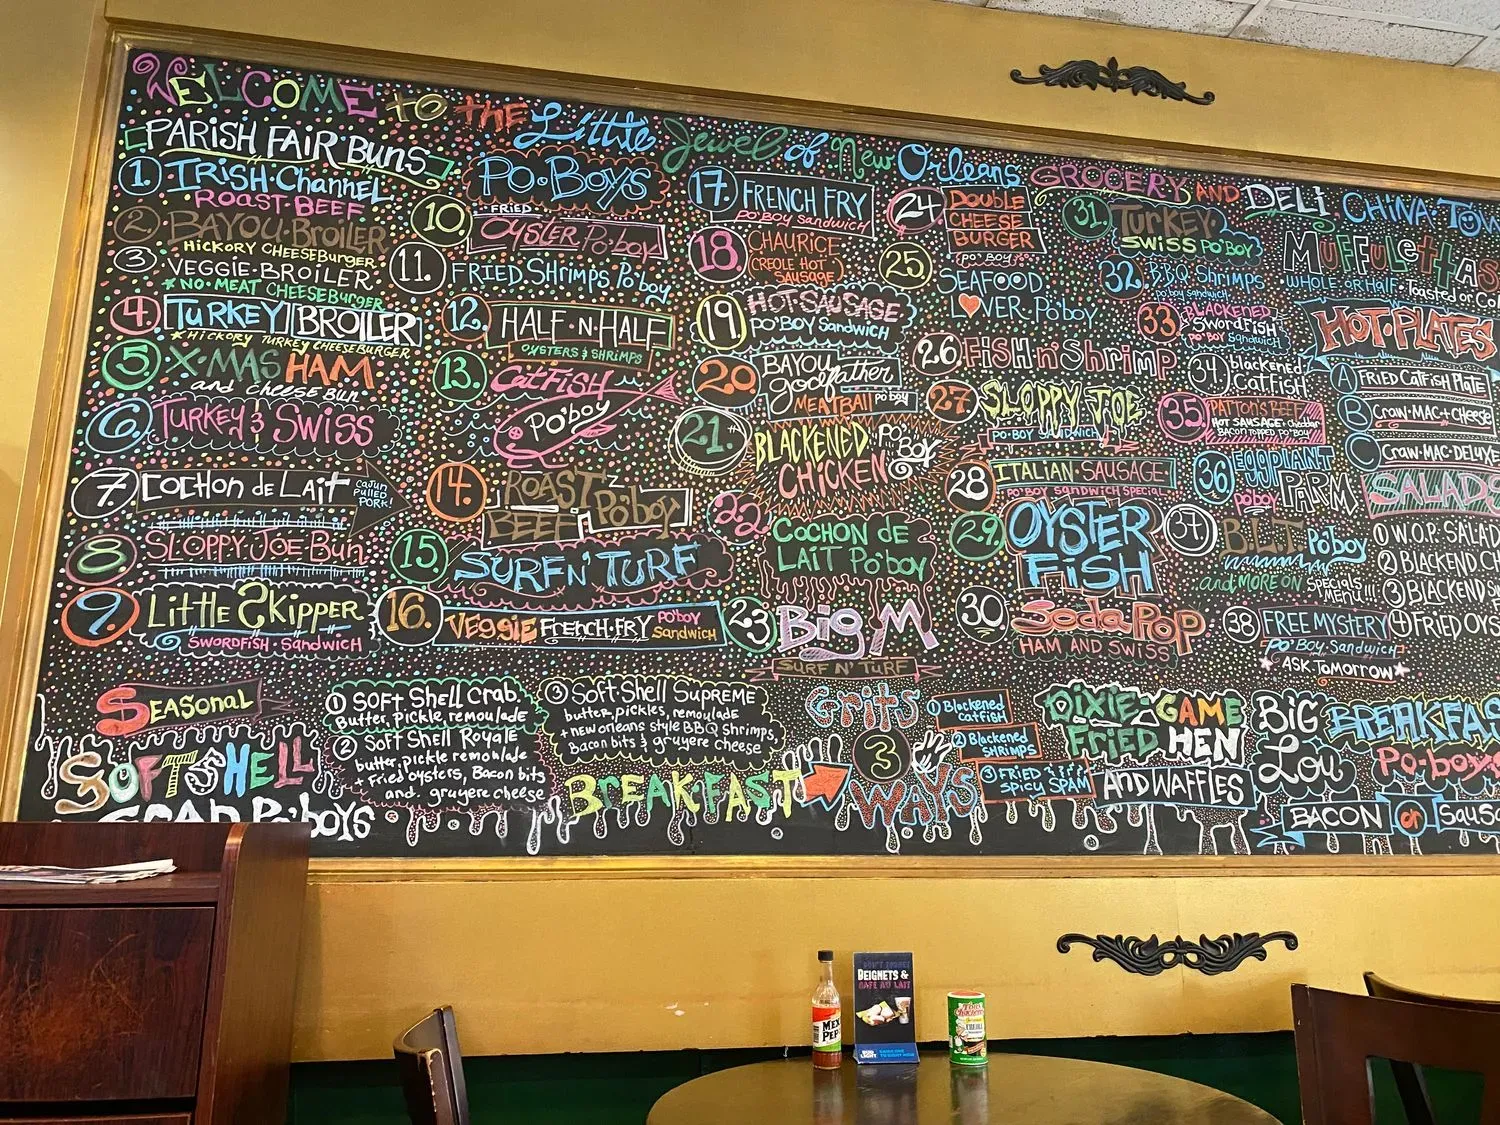 WELCOME to the Little Jewel of New Orleans GROCERY AND DELI CHINA·TOW
PARISH FAIR·BUNS
1. IRISH·Channel
ROAST·BEEF
2. BAYOU·BROILER
HICKORY CHEESEBURGER
3 VEGGIE·BROILER
* NO·MEAT CHEESEBURGER
4. TURKEY BROILER
* HICKORY TURKEY CHEESEBURGER
5. X·MAS HAM
and cheese BUN
6. TURKEY & SWISS
7 COCHON de LAIT
CAJUN PULLED PORK!
8 SLOPPY·JOE BUN
9. LITTLE SKIPPER
SWORDFISH·SANDWICH
PO·BOYS
10. FRIED
OYSTER Po'boy
11. FRIED SHRIMPS Po'boy
12. HALF·N·HALF
OYSTERS & SHRIMPS
13. CATFISH
PO'BOY
14. ROAST BEEF Po'boy
15 SURF N' TURF
16. VEGGIE FRENCH·FRY PO'BOY SANDWICH
17. FRENCH FRY
PO'BOY Sandwich
18 CHAURICE
(CREOLE HOT SAUSAGE)
19 HOT·SAUSAGE
PO'BOY SANDWICH
20 BAYOU godfather
MEATBALL po'boy
21. BLACKENED CHICKEN PO'BOY
22 COCHON DE LAIT PO'BOY
23 Big M
SURF N' TURF
24 DOUBLE CHEESE BURGER
(PO'BOY)
25 SEAFOOD LOVER·PO'BOY
26 FISH n' SHRIMP
27. SLOPPY JOE
PO·BOY SANDWICH
28 ITALIAN·SAUSAGE
PO'BOY SANDWICH SPECIAL
29. OYSTER FISH
30 SODA POP
HAM AND SWISS
31. TURKEY
SWISS PO'BOY
32. BBQ SHRIMPS
po'boy sandwich
33 BLACKENED SWORDFISH
PO'BOY SANDWICH
34 blackened CATFISH
35 PATTON'S BEEF
HOT SAUSAGE·cheddar
BACON TOPPED PO'BOY
36 EGGPLANT PARM
po'boy
37 BLT PO'BOY
and MORE ON SPECIALS MENU!!!
38 FREE MYSTERY
PO'BOY SANDWICH
* ASK TOMORROW *
MUFFULETTAS
WHOLE·OR·HALF·Toasted or Co
HOT·PLATES
A FRIED CATFISH PLATE
B CRAW·MAC+CHEESE
C CRAW·MAC·DELUXE
SALADS
1 W.O.P. SALAD
2 BLACKEND CH
3 BLACKEND S
4 FRIED OYS
SEASONAL
SOFT SHELL
CRAB PO'BOYS
1 SOFT SHELL CRAB
Butter, pickle, remoulade
2 SOFT SHELL ROYALE
butter, pickle remoulade
+ fried oysters, Bacon bits
and. gruyere cheese
3 SOFT·SHELL SUPREME
butter, pickles, remoulade
+ new orleans style BBQ shrimps,
Bacon bits & gruyere cheese
BREAK·FAST
Grits 3 WAYS
1 Blackened catfish
2 Blackened SHRIMPS
3 FRIED SPICY SPAM
DIXIE·FRIED GAME HEN
AND WAFFLES
BIG Lou BREAKFAS
PO·boys
BACON or SAUS
BEIGNETS &
CAFE AU LAIT
MEX
PEP
BUD LIGHT